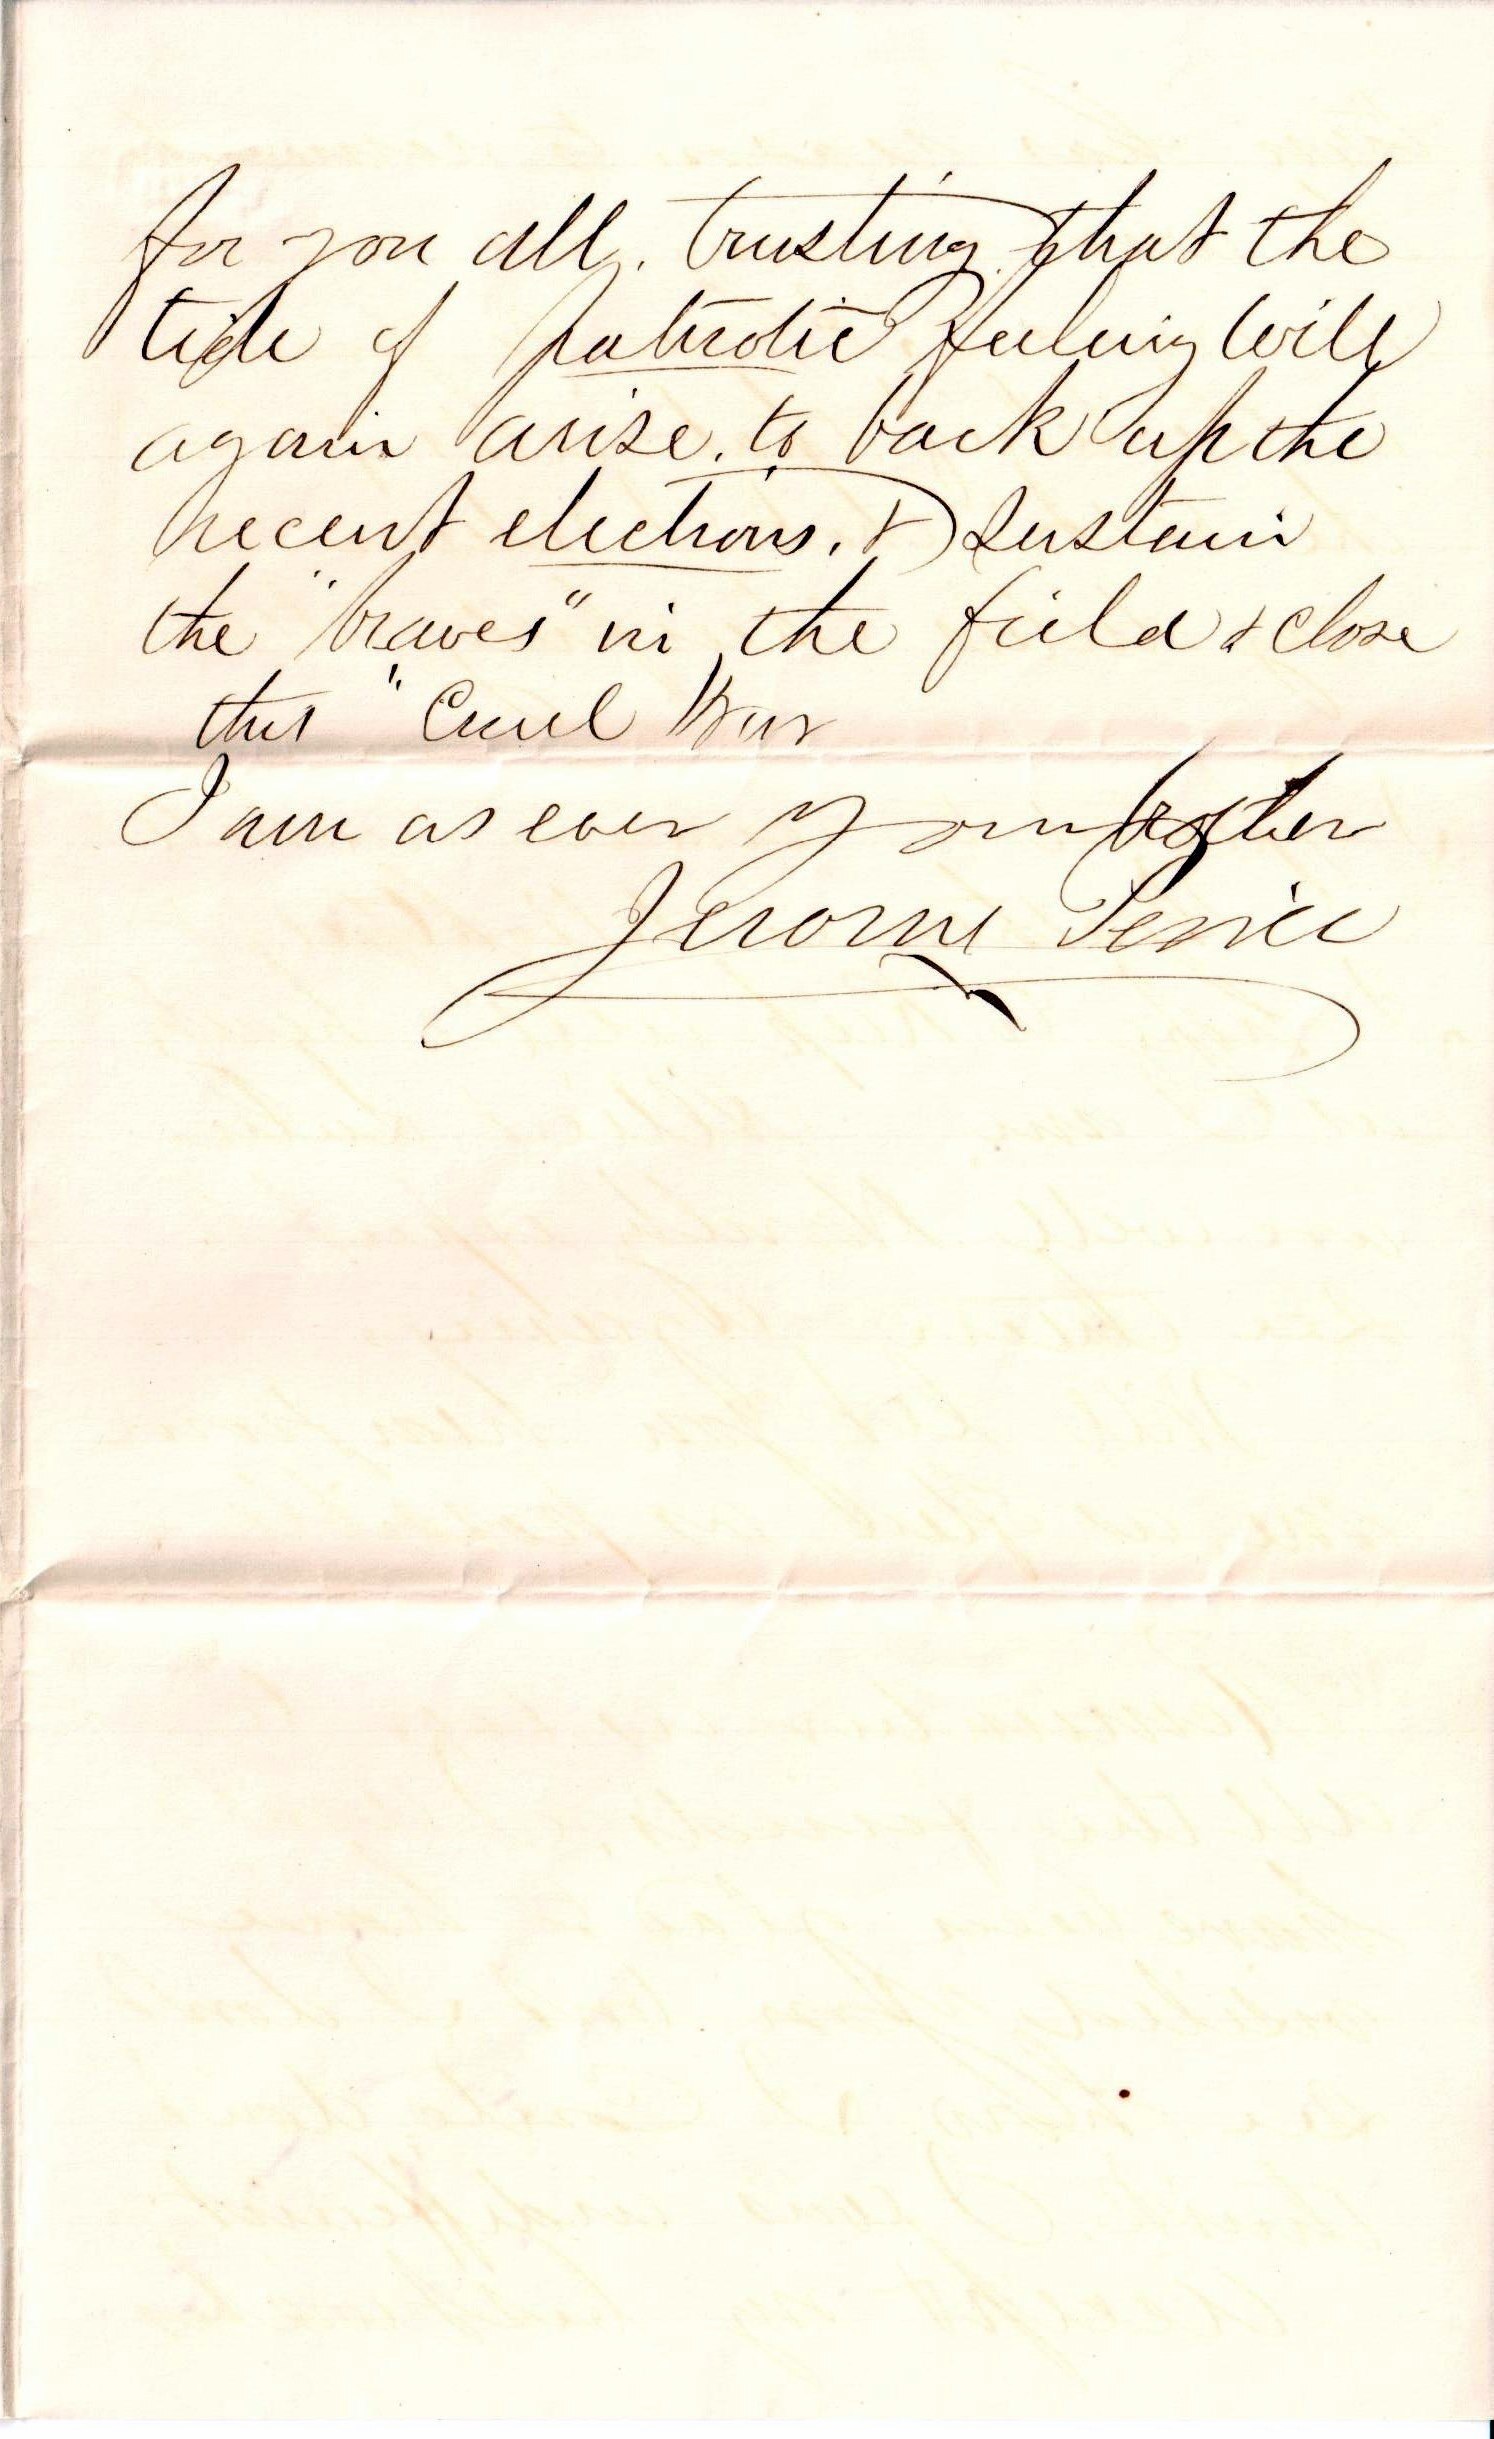 for you all. trusting that the
tide of patriotic feeling will
again arise. to back up the
recent elections. & sustain
the "braves" in the field & close
this "Cruel War
I am as ever your brother
Jerome